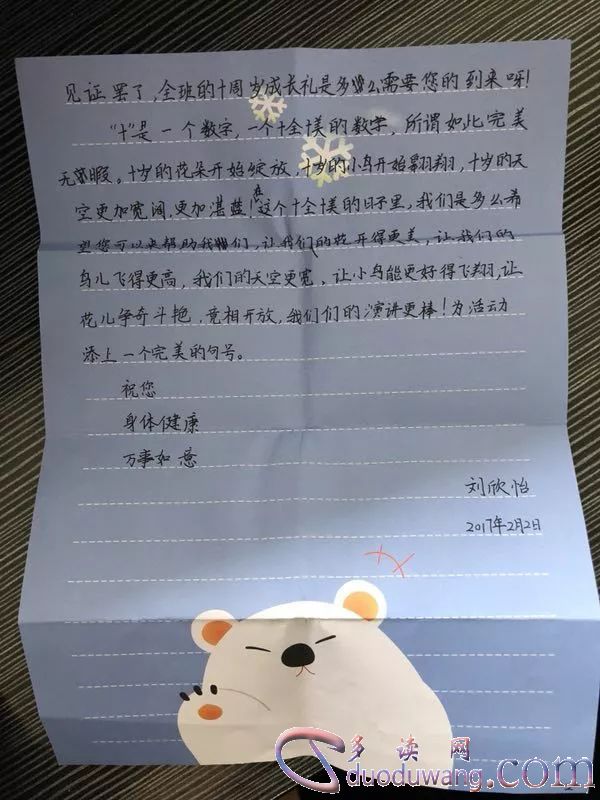 见证罢了,全班的十周岁成长礼是多么需要您的到来呀!
“十”是一个数字,一个十全十美的数字,所谓如此完美
无瑕。十岁的花朵开始绽放,十岁的小鸟开始翱翔,十岁的天
空更加宽阔,更加湛蓝!在这个十全十美的日子里,我们是多么希
望您可以来帮助我们,让我们的花开得更美,让我们的
鸟儿飞得更高,我们的天空更宽、让小鸟能更好得飞翔,让
花儿争奇斗艳,竞相开放,我们们的演讲更棒!为活动
添上一个完美的句号。
祝您
身体健康
万事如意
刘欣怡
2017年2月2日
多读网
duoduwang.com